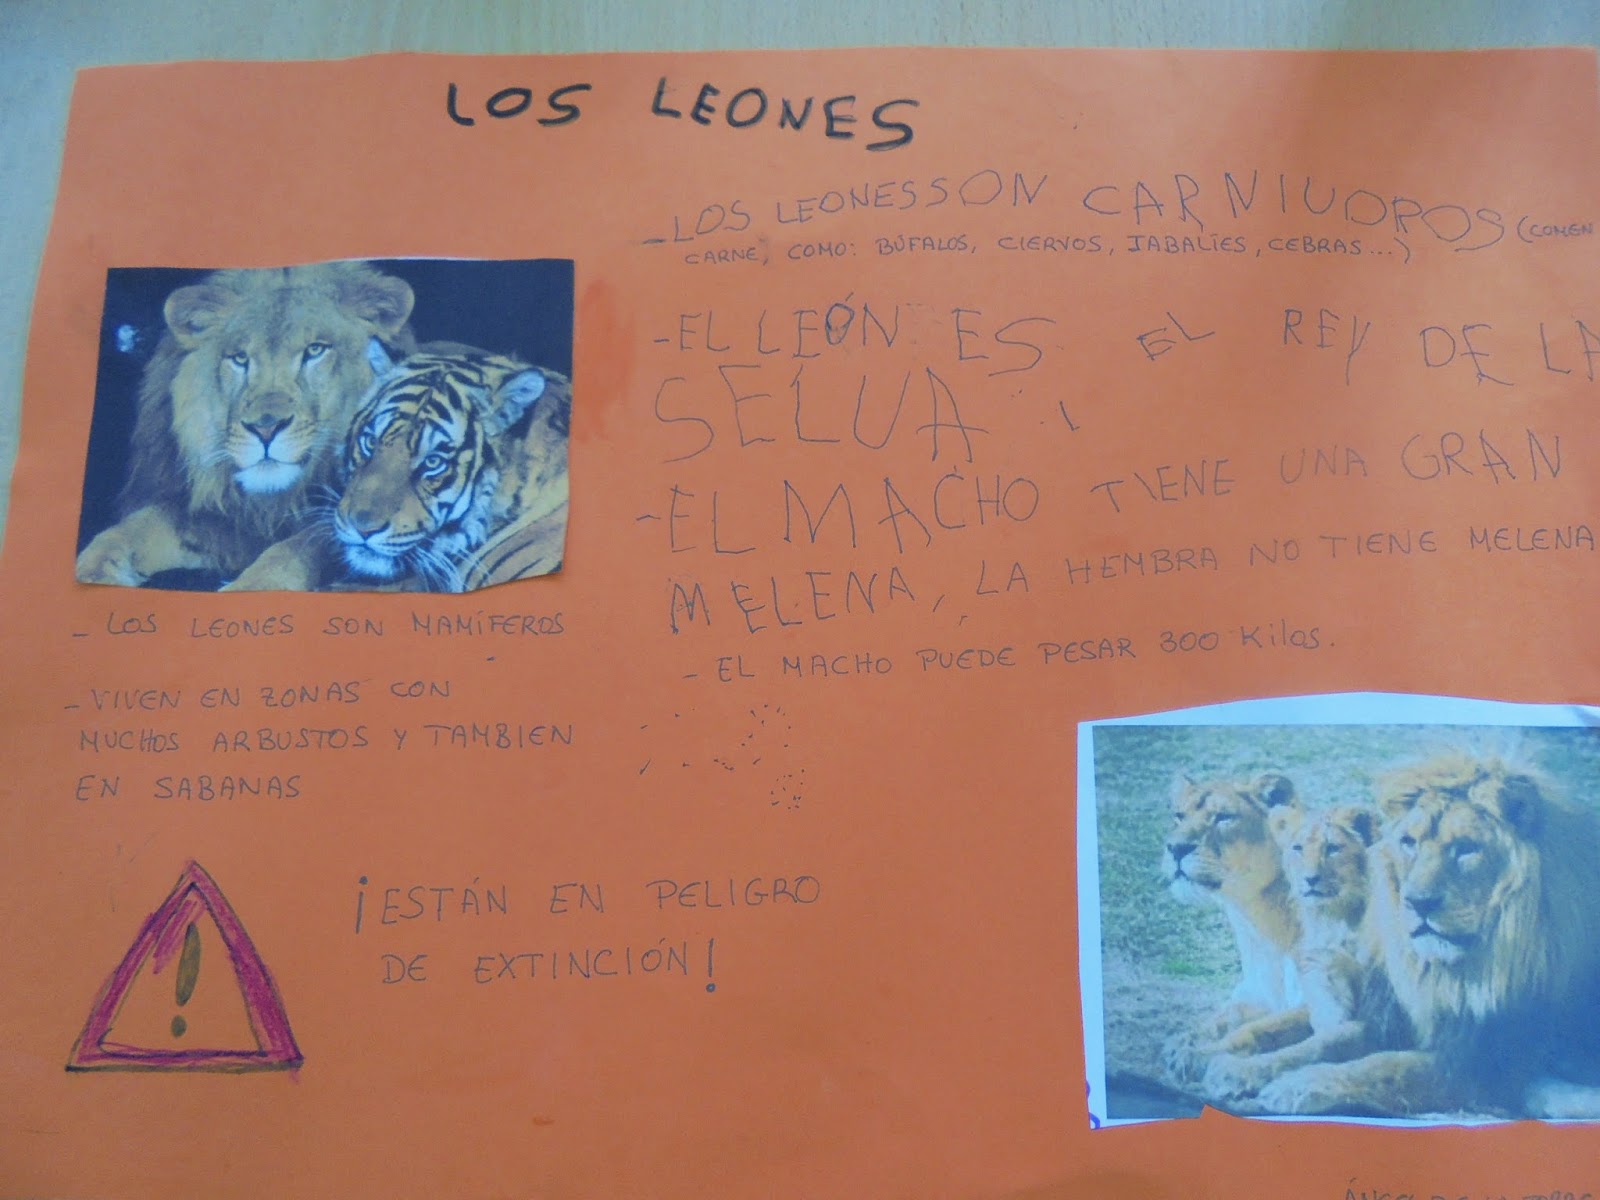 LOS LEONES
- LOS LEONESSON CARNIUOROS (COMEN
CARNE, COMO: BÚFALOS, CIERVOS, JABALÍES, CEBRAS...)
- EL LEÓN ES EL REY DE LA
SELUA
- EL MACHO TIENE UNA GRAN
MELENA, LA HEMBRA NO TIENE MELENA
- EL MACHO PUEDE PESAR 300 Kilos.
- LOS LEONES SON MAMÍFEROS
- VIVEN EN ZONAS CON
MUCHOS ARBUSTOS Y TAMBIEN
EN SABANAS
!
¡ESTÁN EN PELIGRO
DE EXTINCIÓN!